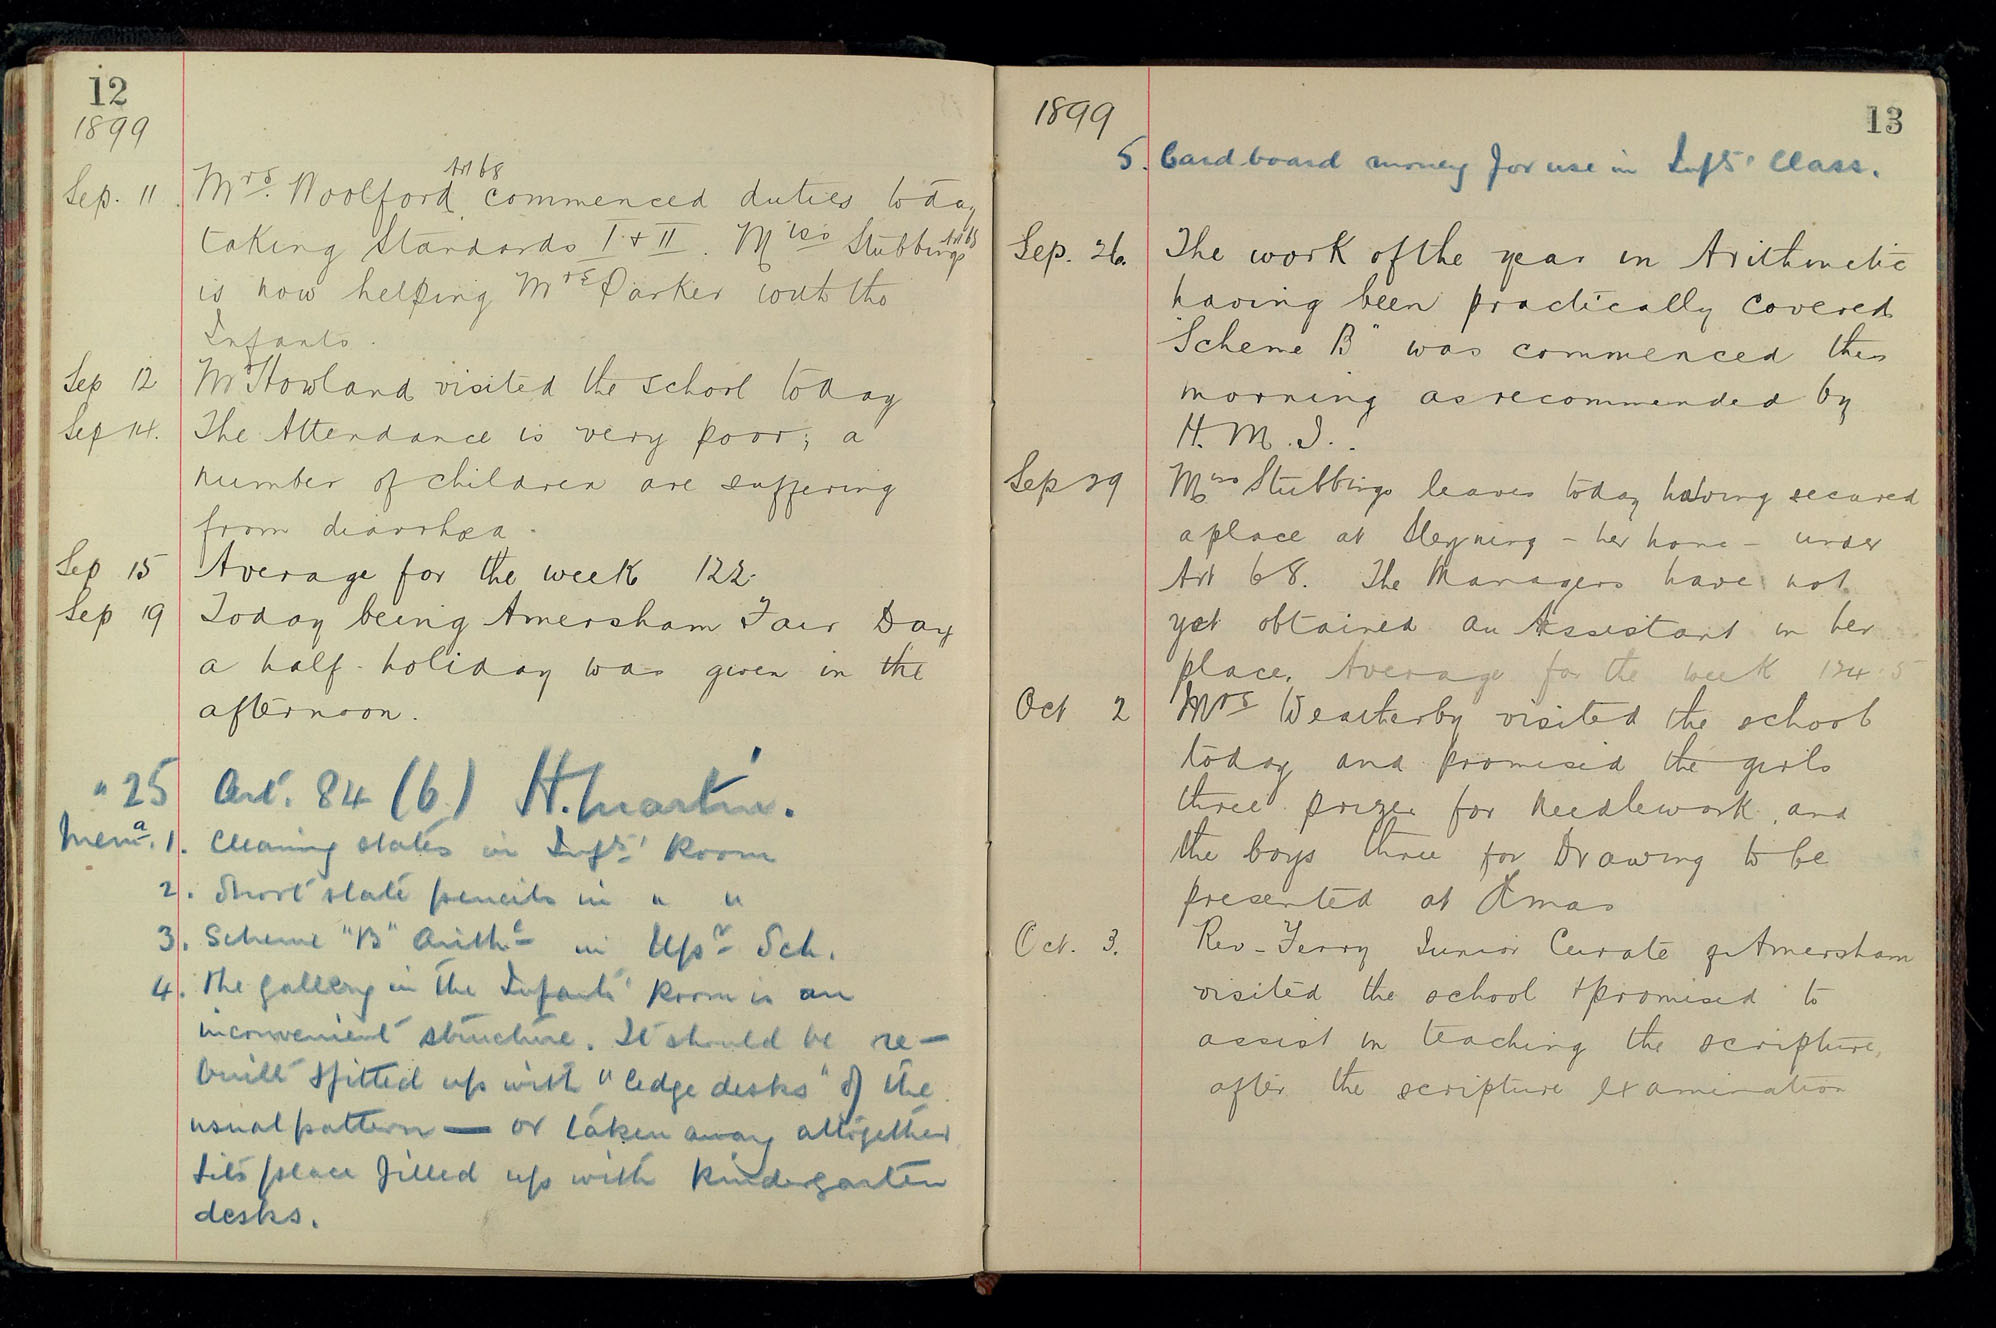 12
1899
Sep. 11. Mrs. Woolford Art 68 commenced duties today
taking Standards I & II. Miss Stubbings Art 68
is now helping Mrs Parker with the
Infants.
Sep 12 Mr Howland visited the school today
Sep 14. The Attendance is very poor; a
number of children are suffering
from diarrhœa.
Sep 15 Average for the week 122.
Sep 19 Today being Amersham Fair Day
a half-holiday was given in the
afternoon.
" 25 Art. 84 (b) H. Martin.
Mema. 1. Cleaning slates in Infts' Room
2. Short slate pencils in " "
3. Scheme "B" Arithc in Upr Sch.
4. The gallery in the Infants' Room is an
inconvenient structure. It should be re-
built & fitted up with "ledge desks" of the
usual pattern — or taken away altogether
& its place filled up with Kindergarten
desks.
1899
13
5. Cardboard money for use in Infts' Class.
Sep. 26. The work of the year in Arithmetic
having been practically covered
"Scheme B" was commenced this
morning as recommended by
H. M. I.
Sep 29 Miss Stubbings leaves today having secured
a place at - her home - under
Art 68. The Managers have not
yet obtained an Assistant in her
place. Average for the week 124.5
Oct 2 Mrs Weatherby visited the school
today and promised the girls
three prizes for Needlework, and
the boys three for Drawing to be
presented at Xmas
Oct. 3. Rev - Ferry Junior Curate of Amersham
visited the school & promised to
assist in teaching the scripture,
after the scripture examination